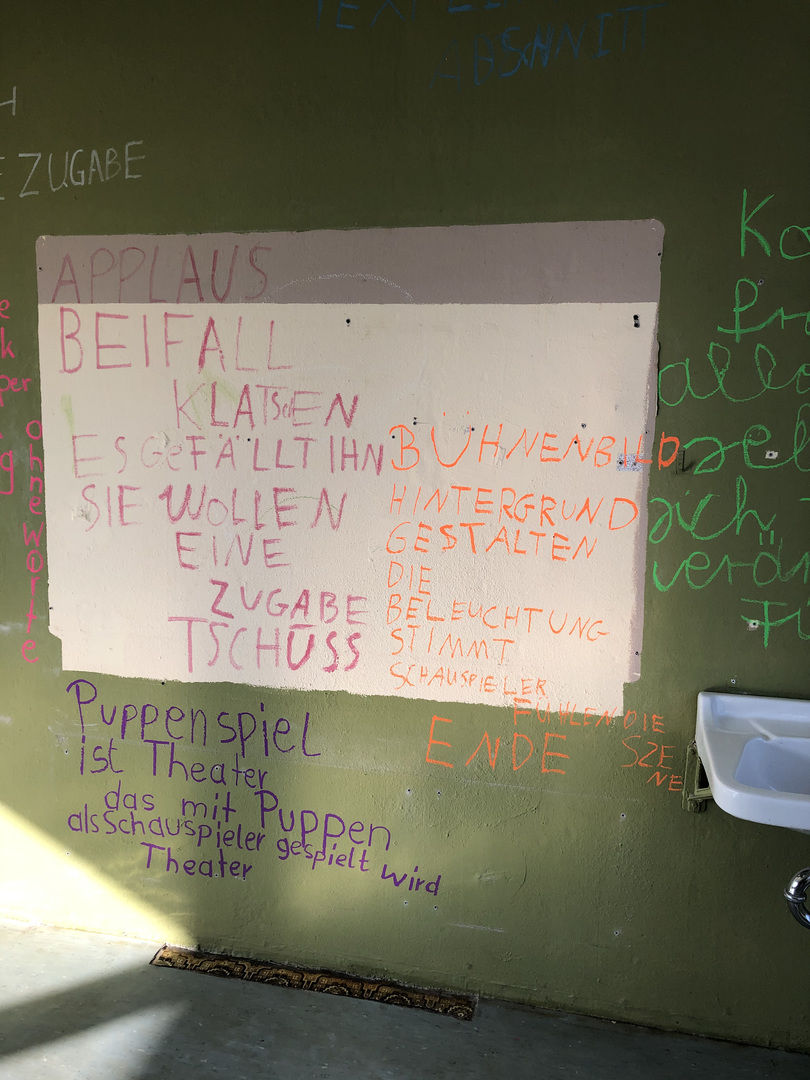 ABSCHNITT
ZUGABE
APPLAUS
BEIFALL
KLATSCHEN
ES GeFÄLLT IHN
SIE WOLLEN
EINE
ZUGABE
TSCHÜSS
BÜHNENBILD
HINTERGRUND
GESTALTEN
DIE
BELEUCHTUNG
STIMMT
SCHAUSPIELER
FÜHLEN DIE
SZE
NE
ENDE
Puppenspiel
ist Theater
das mit Puppen
als Schauspieler gespielt wird
Theater
ohne worte
sich